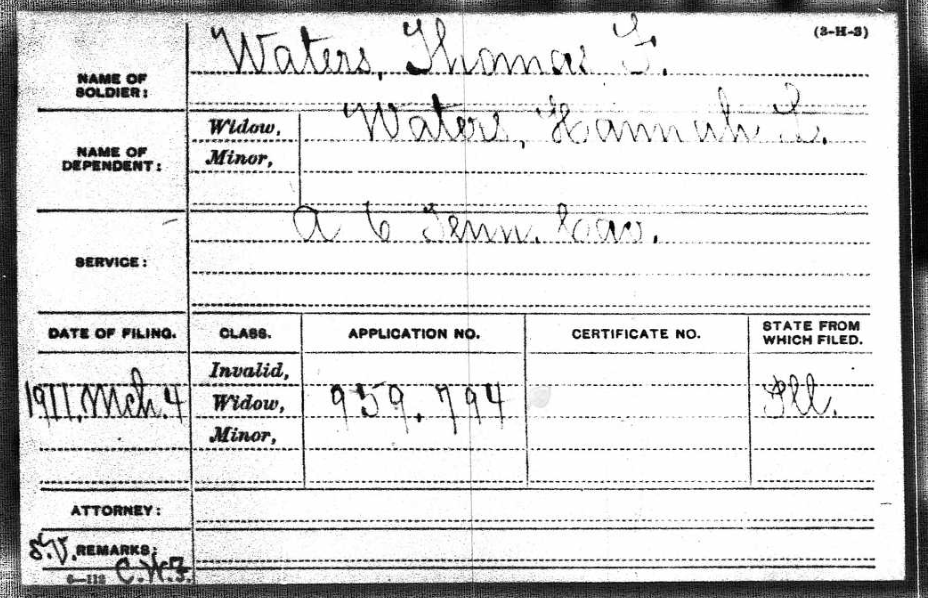 (3-H-3)
NAME OF SOLDIER: Waters, Thomas F.
NAME OF DEPENDENT: Widow, Waters, Hannah L.
Minor,
SERVICE: A 6 Tenn. Cav.
DATE OF FILING. CLASS. APPLICATION NO. CERTIFICATE NO. STATE FROM WHICH FILED.
Invalid,
1911, Mch. 4 Widow, 959.794 Ill.
Minor,
ATTORNEY:
S.V. REMARKS:
6—112 C.W.F.